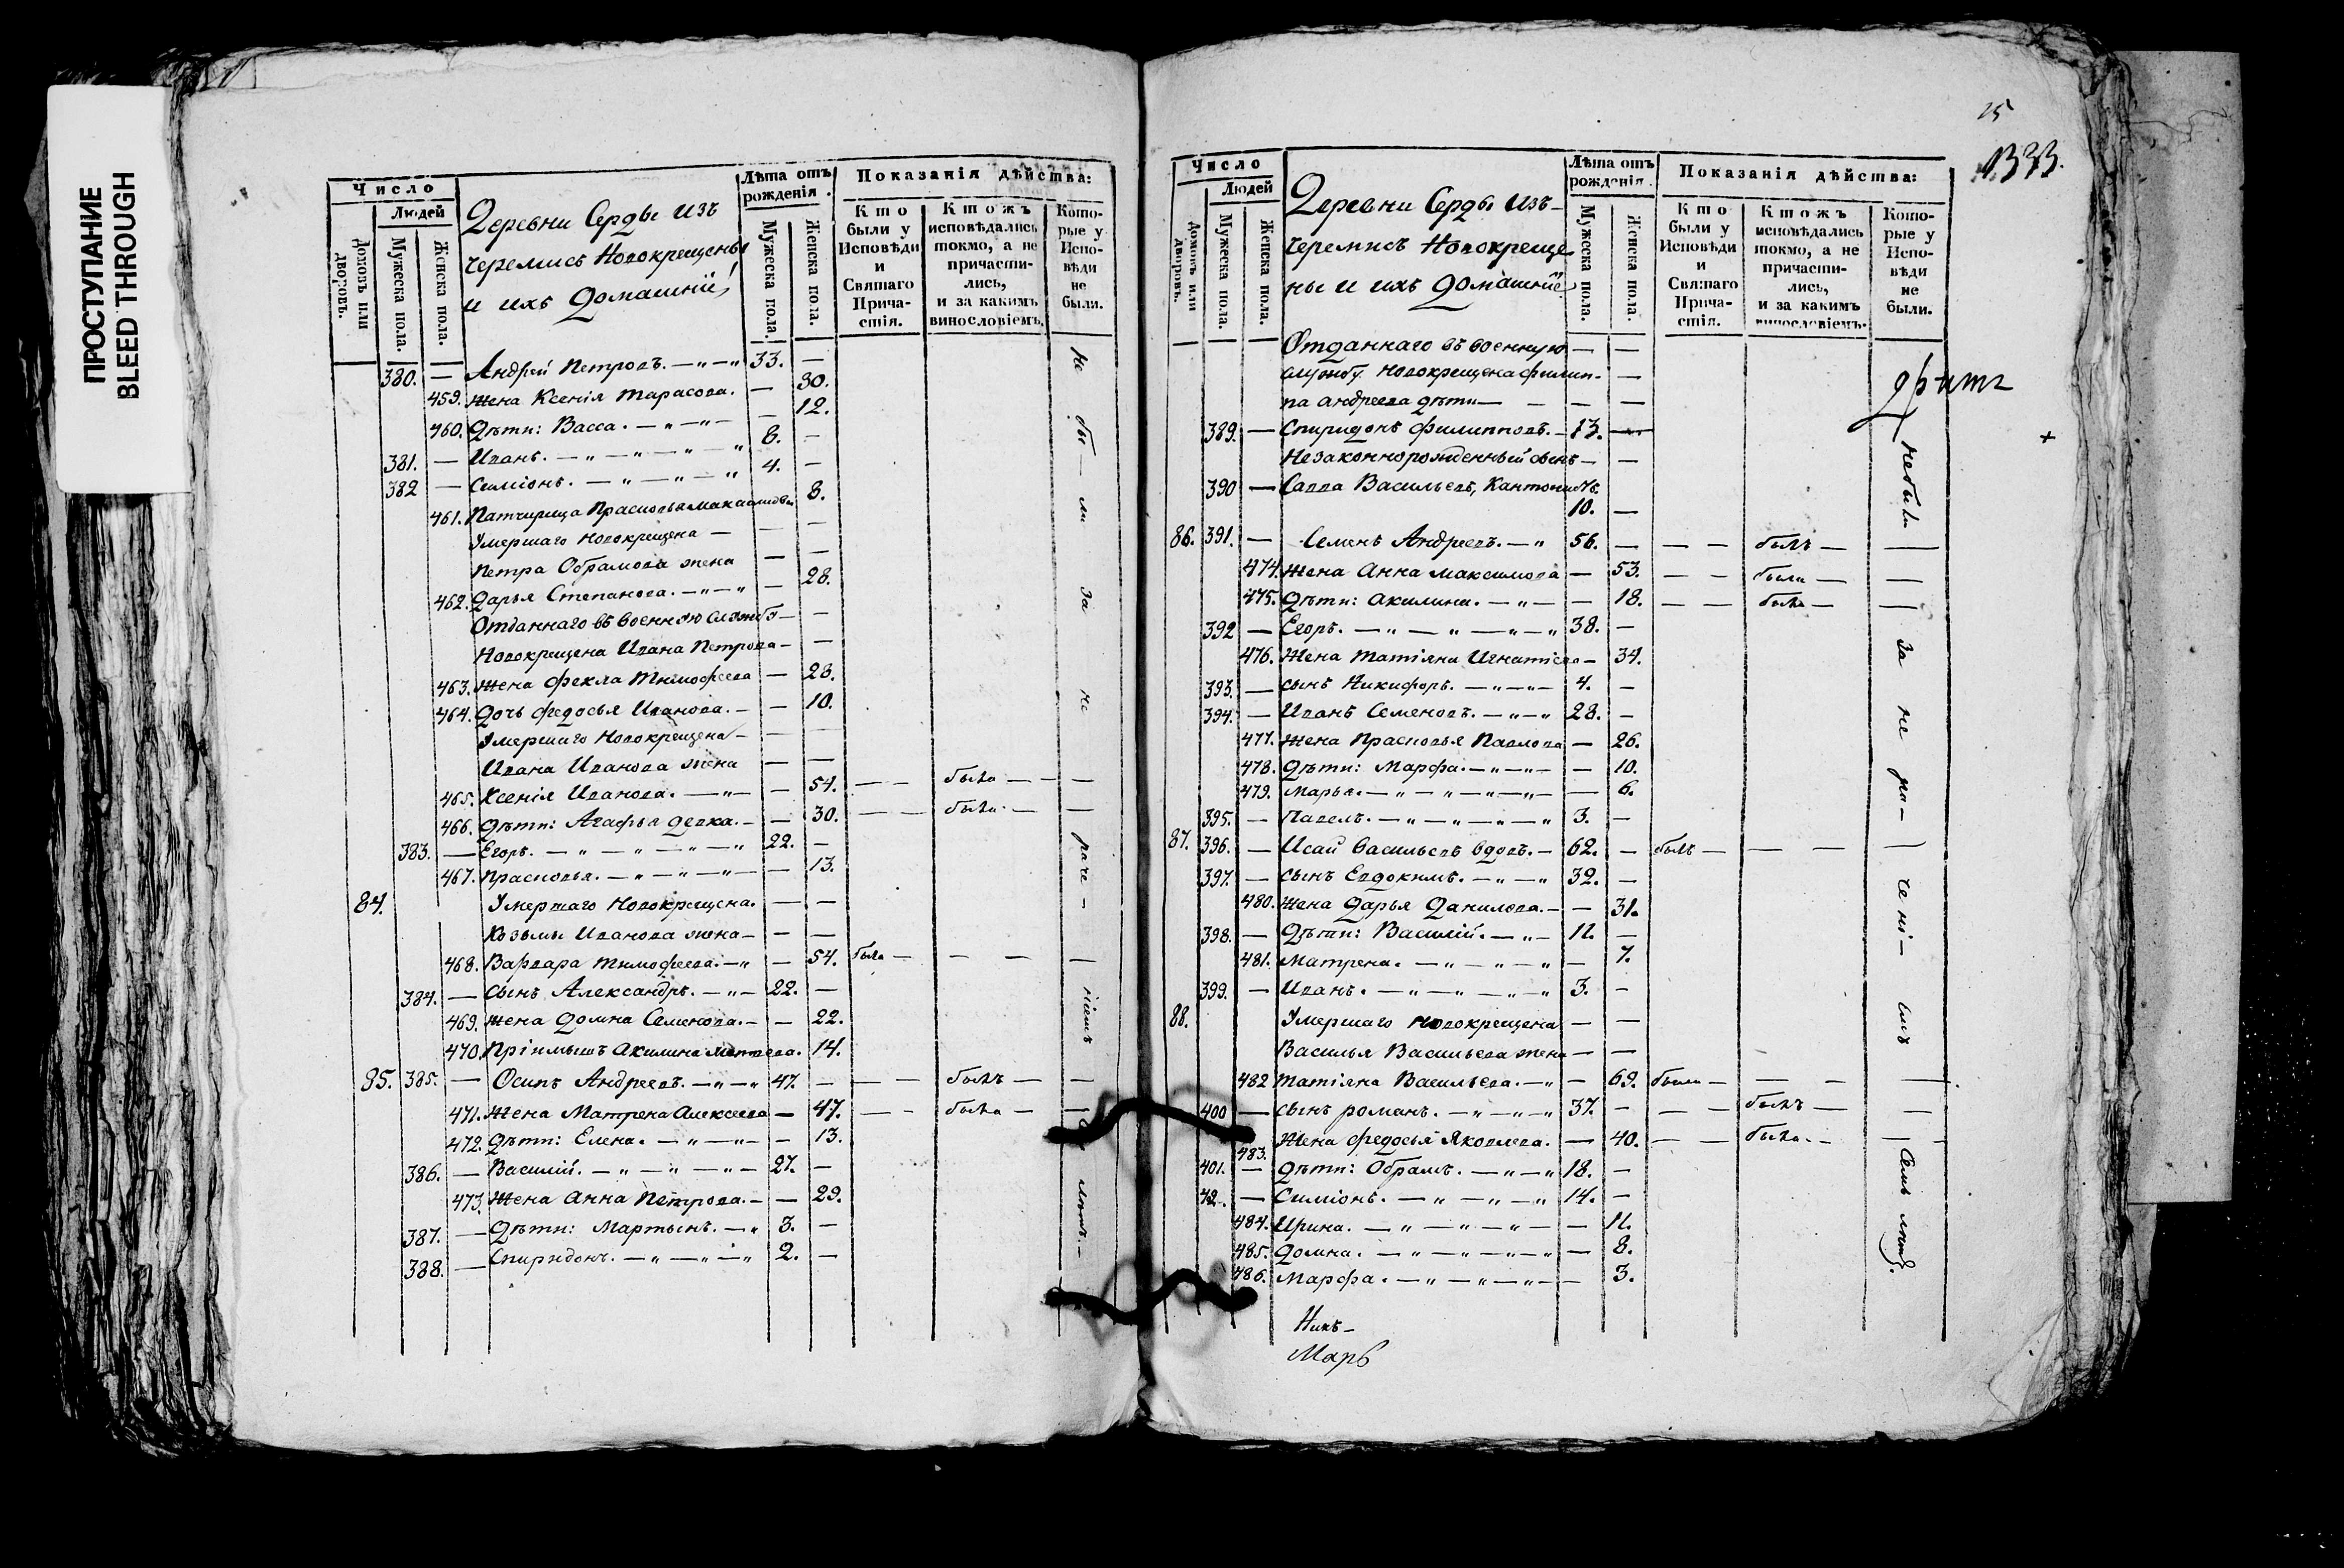 ПРОСТУПАНИЕ
BLEED THROUGH
Число
Людей
Домовъ или дворовъ.
Мужеска пола.
Женска пола.
Деревни Серды изъ
черемисъ Новокрещены
и ихъ домашнiи
Лѣта отъ рожденiя.
Мужеска пола.
Женска пола.
Показанiя дѣйства:
Кто были у Исповѣди и Святаго Прича- стiя.
Ктожъ исповѣдались токмо, а не причасти- лись, и за какимъ винословiемъ.
Кото- рые у Испо- вѣди не были.
380. — Андрей Петровъ. — „ — „ 33. —
459. Жена Ксенiя Тарасова. — 30.
460. Дѣти: Васса. — „ — „ — — 12.
381. — Иванъ. — „ — „ — „ — „ 8. —
382 — Симiонъ. — „ — „ — „ 4. —
461. Патчирица Прасковья Максимова 8.
Умершаго Новокрещена — — —
Петра Обрамова жена — —
462. Дарья Степанова. — „ — „ — 28.
Отданнаго въ военную службу — —
Новокрещена Ивана Петрова — —
463. Жена Фекла Тимофеева — 28.
464. Дочь Федосья Иванова. — — 10.
Умершаго Новокрещена — — —
Ивана Иванова жена — —
465. Ксенiя Иванова. — „ — — 54. — — была — — —
466. Дѣти: Агафья девка. — — 30. — — была — —
383. — Егоръ. — „ — „ — „ — „ 22. —
467. Прасковья. — „ — „ — „ — — 13.
84. Умершаго Новокрещена. — —
Козьмы Иванова жена — — —
468. Варвара Тимофеева. — „ — 54. была — — — —
384. — Сынъ Александръ. — „ — 22. —
469. Жена Домна Семенова. — — 22.
470. Прiимышъ Акилина Матвеева. 14.
85. 385. — Осипъ Андреевъ. — „ — „ 47. — — — былъ — —
471. Жена Матрена Алексеева — 47. — — была — —
472. Дѣти: Елена. — „ — „ — — 13.
386. — Василiй. — „ — „ — „ — 27. —
473. Жена Анна Петрова. — — 29.
387. — Дѣти: Мартынъ. — „ 3. —
388. — Спиридонъ. — „ — „ — „ 2. —
Не бы — ли за не раче — нiемъ
15
1333.
Число
Людей
Домовъ или дворовъ.
Мужеска пола.
Женска пола.
Деревни Серды изъ —
черемисъ Новокреще
ны и ихъ домашнiе
Лѣта отъ рожденiя.
Мужеска пола.
Женска пола.
Показанiя дѣйства:
Кто были у Исповѣди и Святаго Прича- стiя.
Ктожъ исповѣдались токмо, а не причасти- лись, и за какимъ винословiемъ.
Кото- рые у Испо- вѣди не были.
Отданнаго въ военную — —
службу Новокрещена Филип- —
па Андреева дѣти — — — —
389. — Спиридонъ Филипповъ. — 13. —
Незаконнорожденный сынъ — —
390 — Савва Васильевъ, Кантонистъ.
10. —
86. 391. — Семенъ Андреевъ. — „ 56. — — — былъ — —
474. Жена Анна Максимова — 53. — — была — —
475. Дѣти: Акилина. — „ — — 18. — — была — —
392 — Егоръ. — „ — „ — „ — „ 38. —
476. Жена Татiяна Игнатiева — 34.
393. — сынъ Никифоръ. — „ — „ — 4. —
394. — Иванъ Семеновъ. — „ — „ 28. —
477. Жена Прасковья Павлова — 26.
478. Дѣти: Марфа. — „ — „ — — 10.
479. Марья. — „ — „ — „ — „ — — 6.
395. — Павелъ. — „ — „ — „ — „ 3. —
87. 396. — Исай Васильевъ вдовъ. — 62. — былъ — — — —
397. — сынъ Евдокимъ. — „ — „ 32. —
480. Жена Дарья Данилова. — — 31.
398. — Дѣти: Василiй. — „ — 11. —
481. Матрена. — „ — „ — „ — 7.
399. — Иванъ. — „ — „ — „ — „ 3. —
88. Умершаго Новокрещена — —
Василья Васильева жена — —
482 Татiяна Васильева. — „ — 69. была — — — —
400 — сынъ Романъ. — „ — „ — „ 37. — — — былъ — —
483. Жена Федосья Яковлева. — 40. — — была. — —
401. — Дѣти: Обрамъ. — „ — „ 18. —
42. — Симiонъ. — „ — „ — „ 14. —
484. Ирина. — „ — „ — „ — — 11.
485. Домна. — „ — „ — „ — „ — — 8.
486. Марфа. — „ — „ — „ — — 3.
небыли за не ра — ченi — емъ
Никъ —
Марѳ